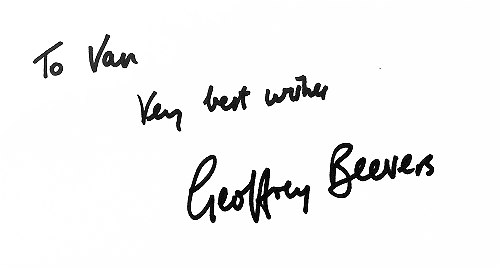 To Van
Very best wishes
Geoffrey Beevers